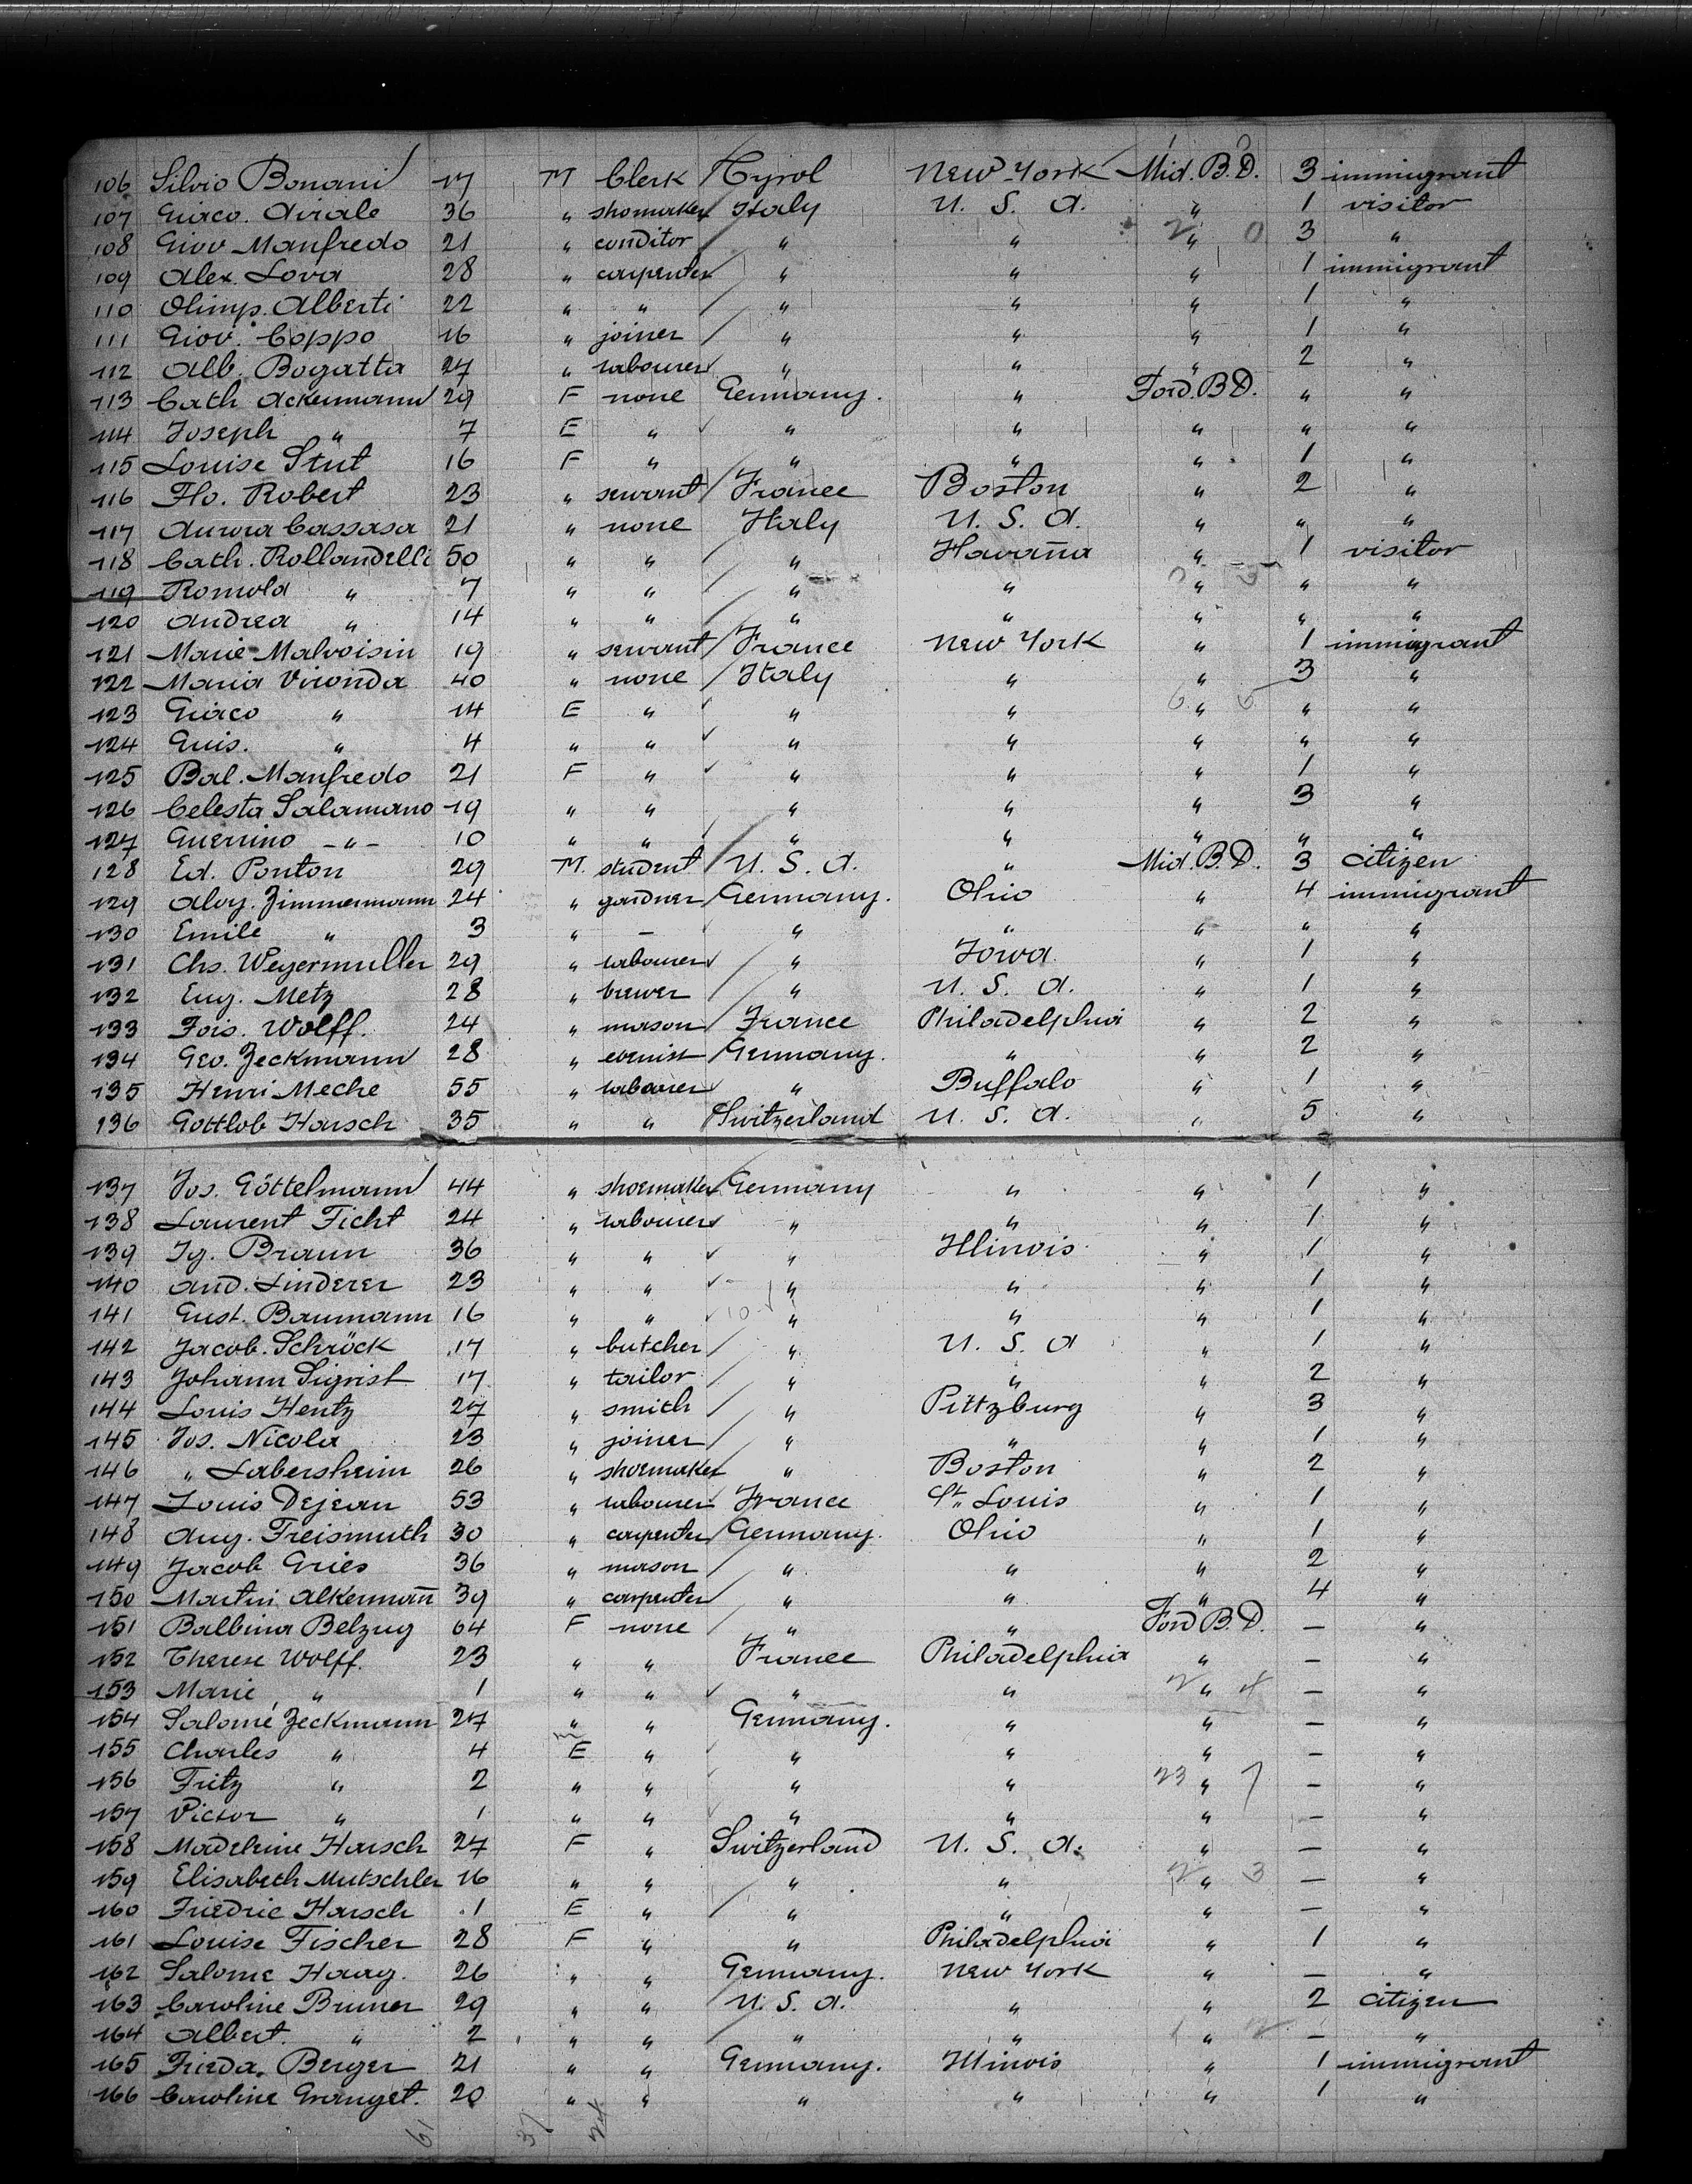 106 Silvio Bonani 17 M Clerk Tyrol New York Mid. B. D. 3 immigrant
107 Giaco. Airale 36 " shomaker Italy U. S. A. " 1 visitor
108 Giov Manfredo 21 " conditor " " " 3 "
109 Alex. Lova 28 " carpenter " " " 1 immigrant
110 Olimp. Alberti 22 " " " " " 1 "
111 Giov. Coppo 16 " joiner " " " 1 "
112 Alb. Bogatta 27 " labourer " " " 2 "
113 Cath Ackermann 29 F none Germany. " Forд. B D. " "
114 Joseph " 7 E " " " " " "
115 Louise Stut 16 F " " " " 1 "
116 Flo. Robert 23 " servant France Boston " 2 "
117 Aurora Cassasa 21 " none Italy U. S. A. " " "
118 Cath. Rollandelli 50 " " " Havana " 1 visitor
119 Romola " 7 " " " " " " "
120 Andrea " 14 " " " " " " "
121 Marie Malvoisin 19 " servant France New York " 1 immigrant
122 Maria Vironda 40 " none Italy " " 3 "
123 Giaco " 14 E " " " " " "
124 Guis. " 4 " " " " " " "
125 Bal. Manfredo 21 F " " " " 1 "
126 Celesta Salamano 19 " " " " " 3 "
127 Guerrino - " - 10 " " " " " " "
128 Ed. Ponton 29 M. student U. S. A. " Mid. B. D. 3 citizen
129 Aloy. Zimmermann 24 " gardner Germany. Ohio " 4 immigrant
130 Emile " 3 " - " " " " "
131 Chs. Weyermuller 29 " labourer " Iowa " 1 "
132 Eug. Metz 28 " brewer " U. S. A. " 1 "
133 Fois. Wolff. 24 " mason France Philadelphia " 2 "
134 Geo. Zeckmann 28 " ebenist Germany. " " 2 "
135 Henri Meche 55 " labourer " Buffalo " 1 "
136 Gottlob Harsch 35 " " Switzerland U. S. A. " 5 "
137 Jos. Göttelmann 44 " shoemaker Germany " " 1 "
138 Laurent Ficht 24 " labourer " " " 1 "
139 Ig. Braun 36 " " " Illinois " 1 "
140 And. Linderer 23 " " " " " 1 "
141 Gust. Baumann 16 " " " " " 1 "
142 Jacob. Schröck 17 " butcher " U. S. A " 1 "
143 Johann Sigrist 17 " tailor " " " 2 "
144 Louis Hentz 27 " smith " Pittzburg " 3 "
145 Jos. Nicola 23 " joiner " " " 1 "
146 " Labersheim 26 " shoemaker " Boston " 2 "
147 Louis Dejean 53 " labourer France St. Louis " 1 "
148 Aug. Freismuth 30 " carpenter Germany. Ohio " 1 "
149 Jacob Gries 36 " mason " " " 2 "
150 Martin Alkermañ 39 " carpenter " " " 4 "
151 Balbina Belzug 64 F none " " Ford B. D. - "
152 Therese Wolff. 23 " " France Philadelphia " - "
153 Marie " 1 " " " " " - "
154 Salomé Zeckmann 27 " " Germany. " " - "
155 Charles " 4 E " " " " - "
156 Fritz " 2 " " " " " - "
157 Victor " 1 " " " " " - "
158 Madeleine Harsch 27 F " Switzerland U. S. A. " - "
159 Elisabeth Mutschler 16 " " " " " - "
160 Friedric Harsch 1 E " " " " - "
161 Louise Fischer 28 F " " Philadelphia " 1 "
162 Salome Haag. 26 " " Germany. New York " - "
163 Caroline Bruner 29 " " U. S. A. " " 2 citizen
164 Albert " 2 " " " " " - "
165 Frieda. Berger 21 " " Germany. Illinois " 1 immigrant
166 Caroline Granget. 20 " " " " " 1 "